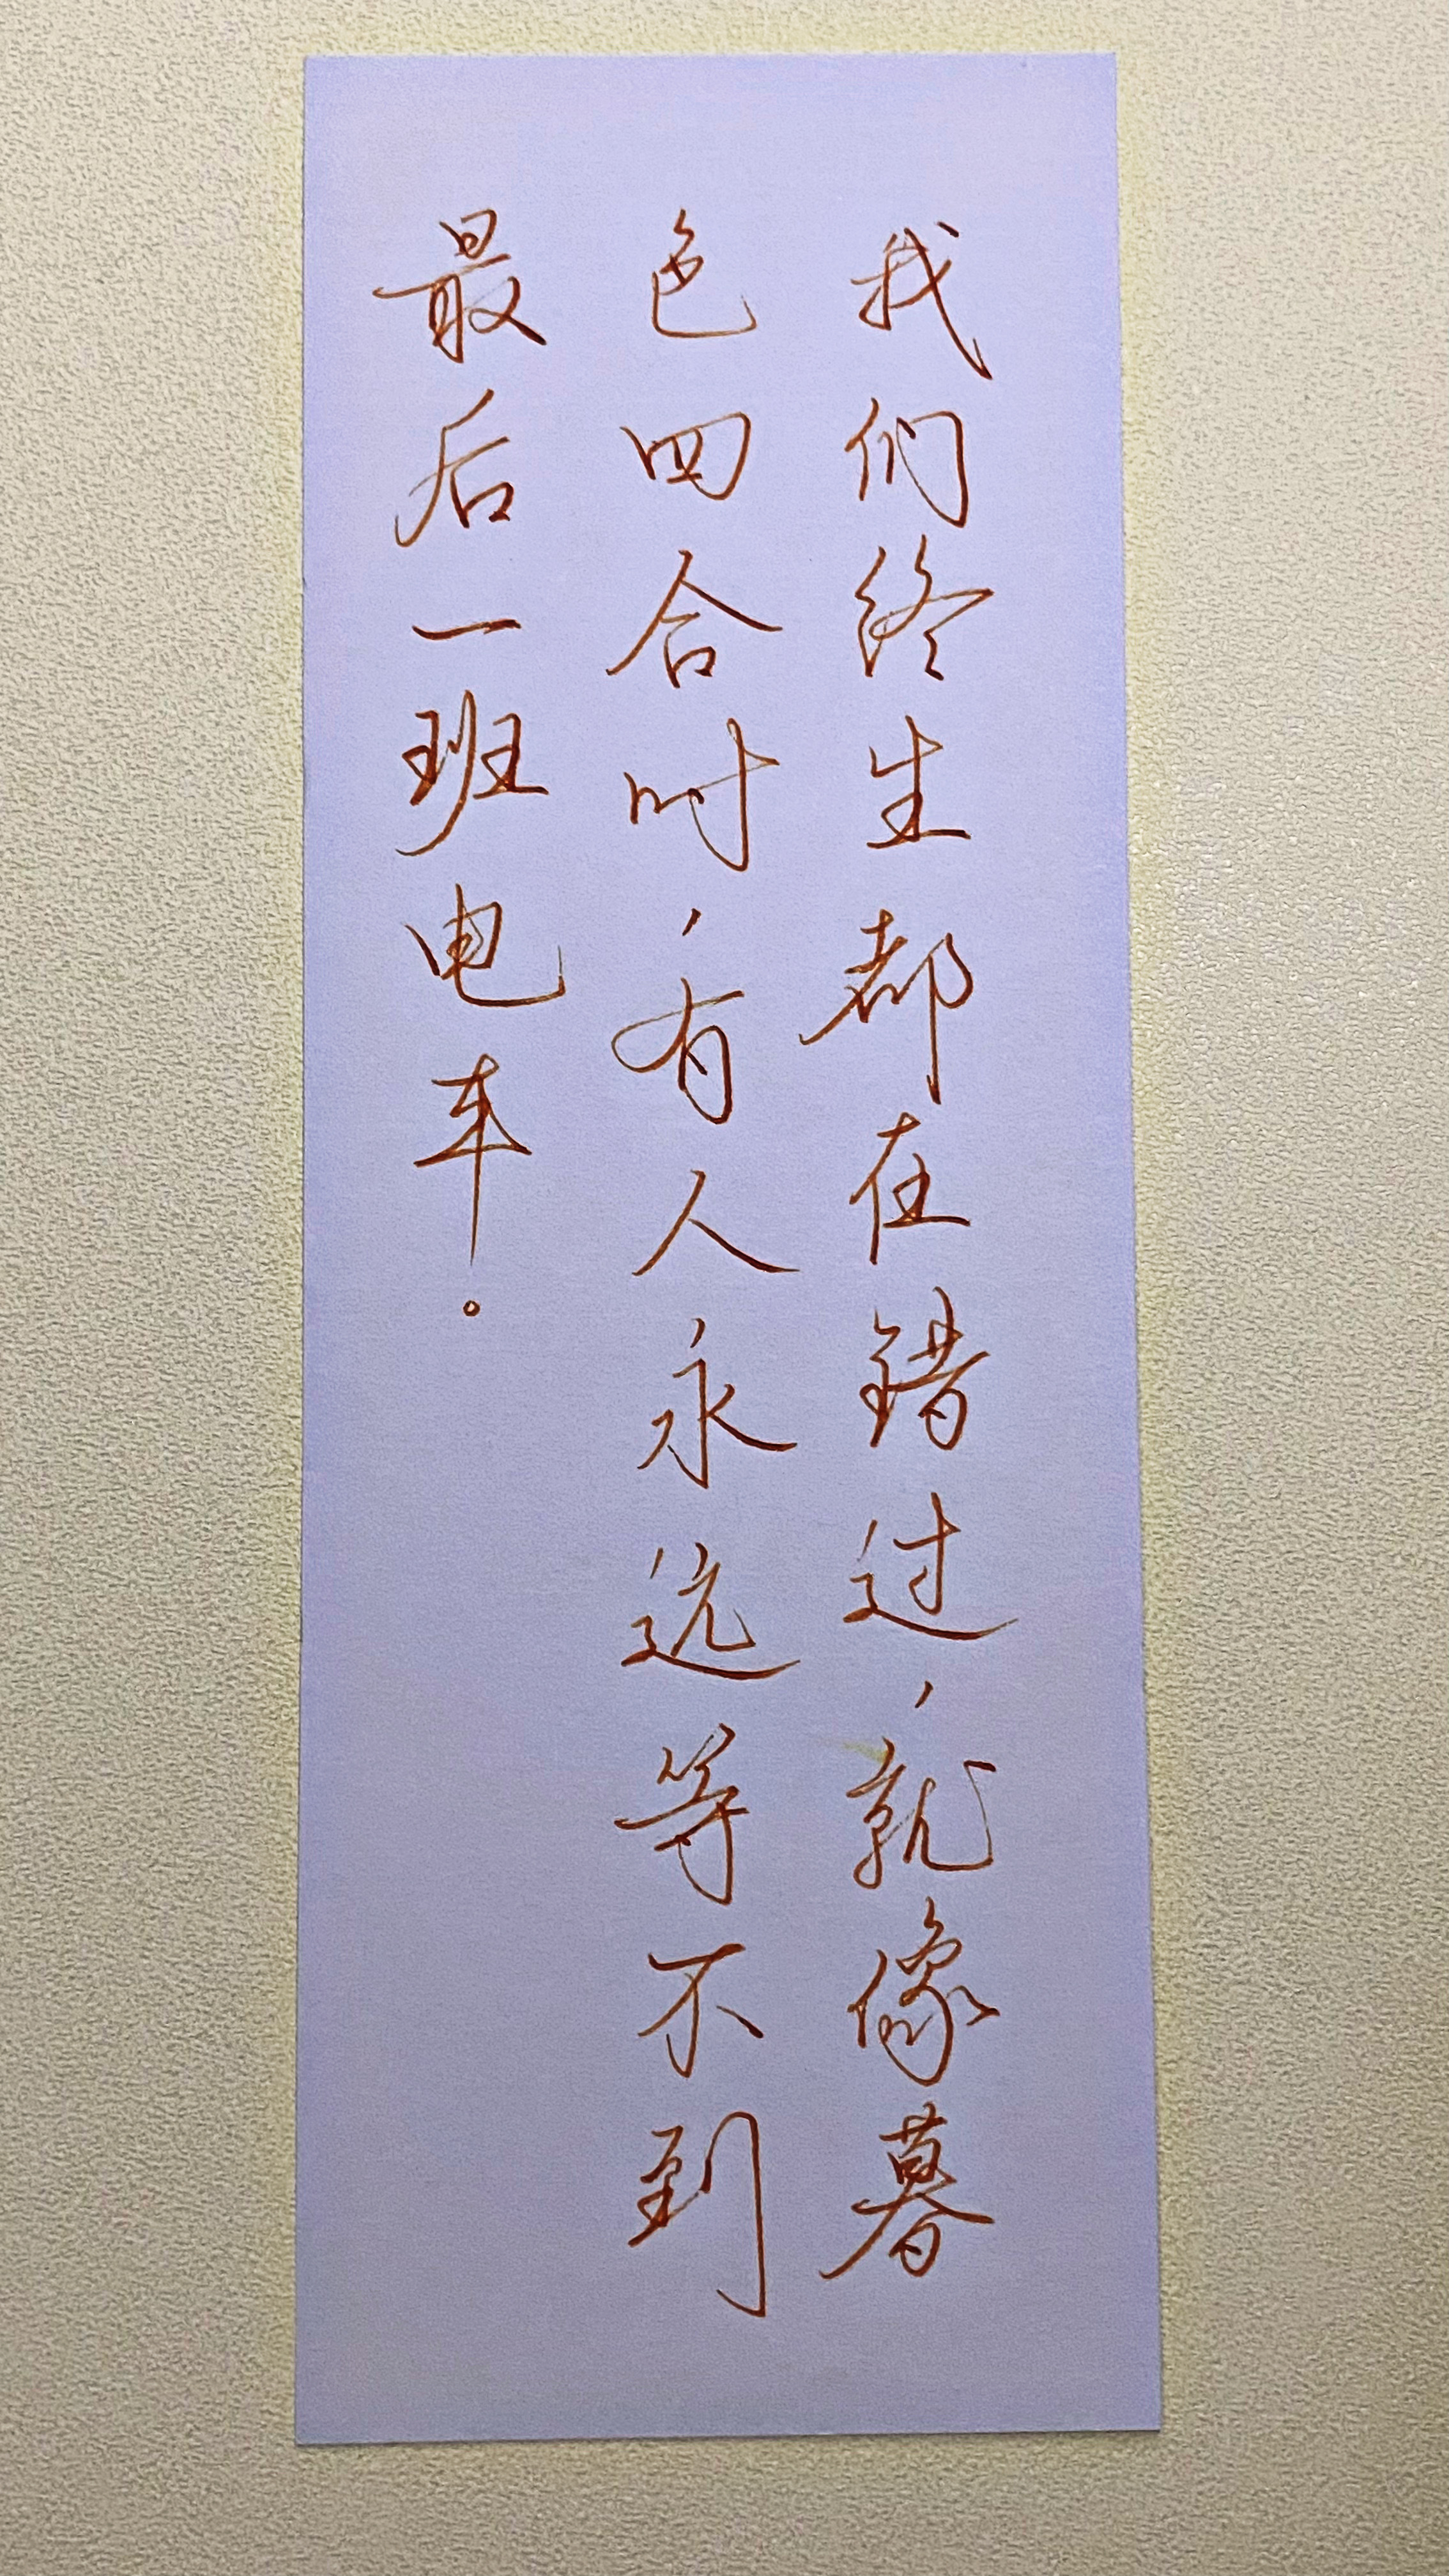 我们终生都在错过，就像暮
色四合时，有人永远等不到
最后一班电车。